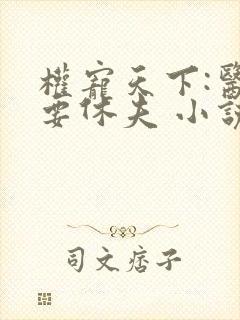 權寵天下:醫
要休夫 小說
司文痞子